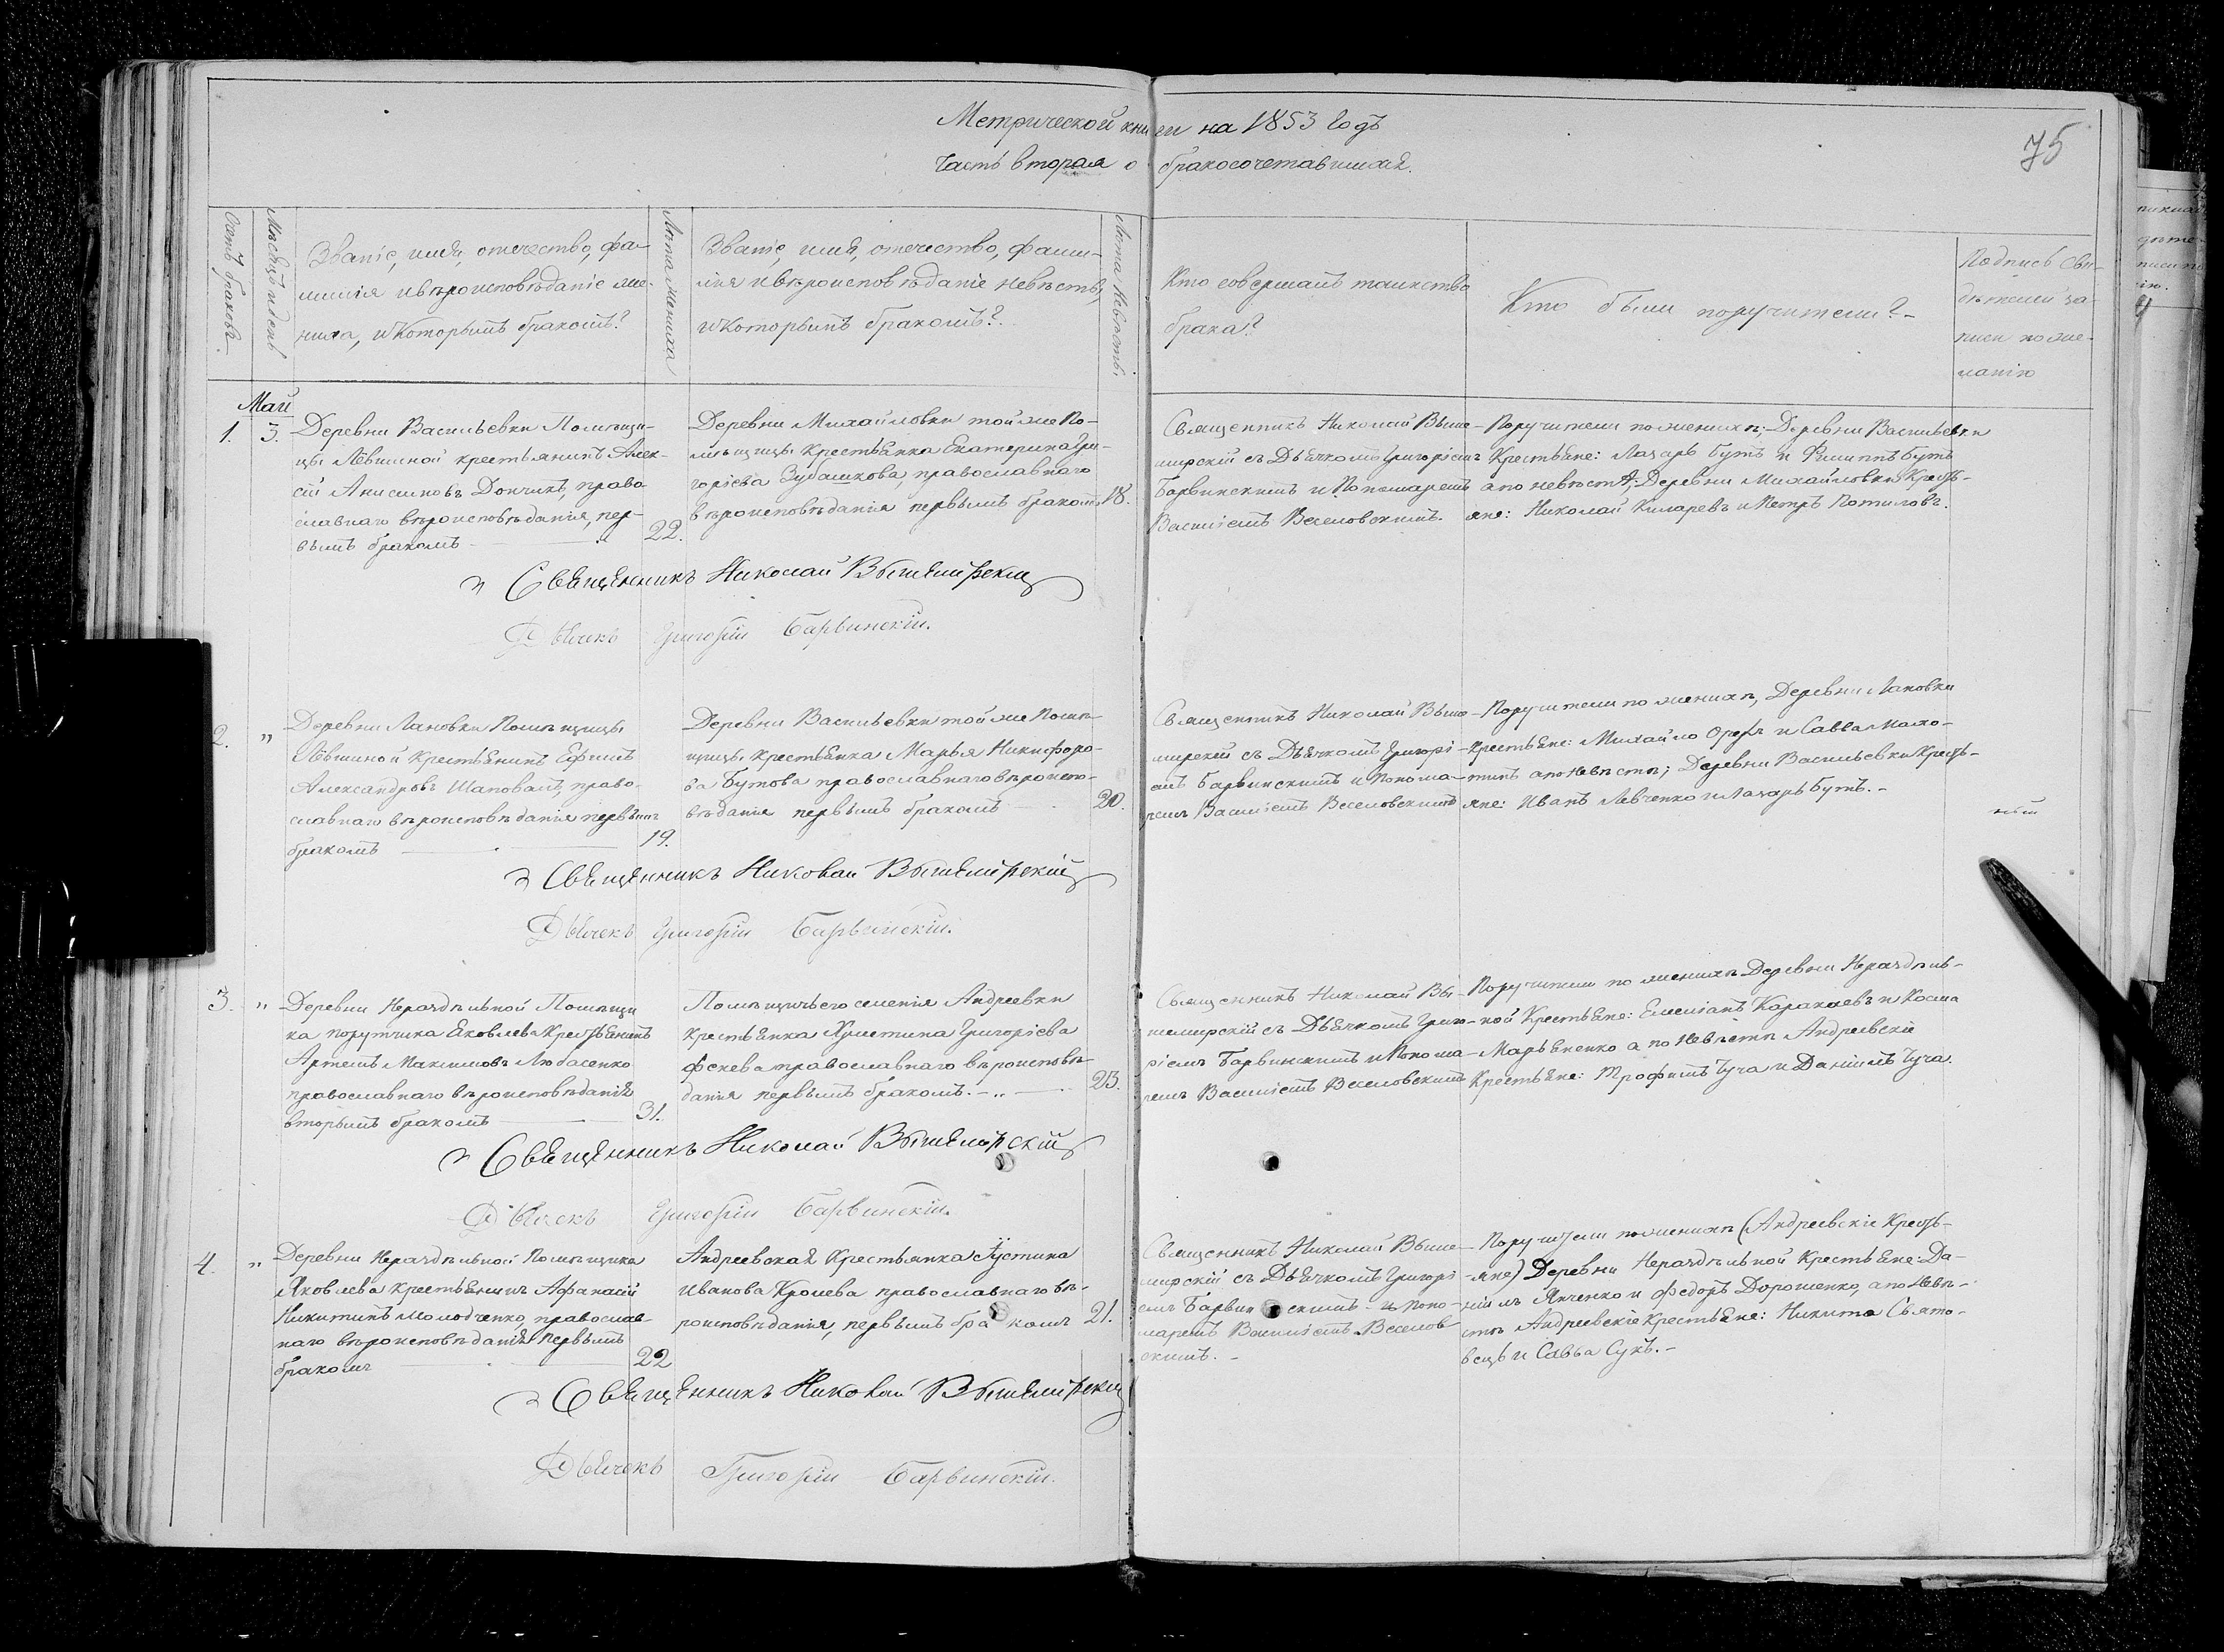 Метрической книги на 1853 годъ
Часть вторая о бракосочетавшихся.
75
Счетъ браковъ.
Мѣсяцъ и день
Званіе, имя, отечество, фа-
милія и вѣроисповѣданіе же-
ниха, и которымъ бракомъ?
Лѣта жениха
Званіе, имя, отечество, фами-
лія и вѣроисповѣданіе невѣсты,
и которымъ бракомъ?
Лѣта невѣсты.
Кто совершалъ таинство
брака?
Кто были поручители?
Подпись сви-
дѣтелей за-
писи по же-
ланію
Май
1. 3.
Деревни Васильевки Помѣщи-
цы Лёвшиной крестьянинъ Алек-
сій Анисимовъ Дончикъ, право-
славнаго вѣроисповѣданія, пер-
вымъ бракомъ
22.
Деревни Михайловки той же По-
мѣщицы крестьянка Екатерина Гри-
горіева Зубашкова, православнаго
вѣроисповѣданія первымъ бракомъ
18.
Священникъ Николай Выше-
мирскій съ Дьячкомъ Григоріемъ
Барвинскимъ и Пономаремъ
Василіемъ Веселовскимъ.
Поручители по женихѣ; Деревни Васильевки
Крестьяне: Лазарь Бутъ и Филиппъ Бутъ
а по невѣстѣ; Деревни Михайловки Кресть-
яне: Николай Киларевъ и Петръ Потиловъ.
Священникъ Николай Вышемирскій
Дьячекъ Григорій Барвинскій.
2. "
Деревни Лановки Помѣщицы
Лёвшиной Крестьянинъ Ефимъ
Александровъ Шаповалъ, право-
славнаго вѣроисповѣданія первымъ
бракомъ
19.
Деревни Васильевки той же Помѣ-
щицы крестьянка Марья Никифоро-
ва Бутова православнаго вѣроиспо-
вѣданія первымъ бракомъ
20.
Священникъ Николай Выше-
мирскій съ Дьячкомъ Григорі-
емъ Барвинскимъ и Понома-
ремъ Василіемъ Веселовскимъ
Поручители по женихѣ, Деревни Лановки
Крестьяне: Михайло Орелъ и Савва Мало-
тинъ а по невѣстѣ; Деревни Васильевки Кресть-
яне: Иванъ Левченко и Лазарь Бутъ.
Священникъ Николай Вышемирскій
Дьячекъ Григорій Барвинскій.
3. "
Деревни Нераздѣльной Помѣщи
ка порутчика Яковлева Крестьянинъ
Артемъ Максимовъ Любасенко
православнаго вѣроисповѣданія
вторымъ бракомъ
31.
Помѣщичьего селенія Андреевки
крестьянка Христина Григоріева
православнаго вѣроисповѣ-
данія первымъ бракомъ.
23.
Священникъ Николай Вы-
шемирскій съ Дьячкомъ Григо-
ріемъ Барвинскимъ и Понома-
ремъ Василіемъ Веселовскимъ
Поручители по женихѣ Деревни Нераздѣль-
ной Крестьяне: Емеліанъ Каракаевъ и Косма
Марьяненко а по невѣстѣ Андреевскіе
Крестьяне: Трофимъ Чуча и Даніилъ Чуча.
Священникъ Николай Вышемирскій
Дьячекъ Григорій Барвинскій.
4. "
Деревни Нераздѣльной Помѣщика
Яковлева Крестьянинъ Афанасій
Никитинъ Молодченко, православ-
наго вѣроисповѣданія первымъ
бракомъ
22
Андреевская Крестьянка Іустина
Иванова Кролева православнаго вѣ-
роисповѣданія, первымъ бракомъ
21.
Священникъ Николай Выше-
мирскій съ Дьячкомъ Григорі
емъ Барвинскимъ и Поно-
маремъ Василіемъ Веселов-
скимъ.
Поручители по женихѣ (Андреевскіе Кресть-
яне) Деревни Нераздѣльной Крестьяне: Да-
ніилъ Янченко и Федоръ Дорошенко, а по невѣ-
стѣ Андреевскіе Крестьяне: Никита Свято-
вецъ и Савва Сукъ.
Священникъ Николай Вышемирскій
Дьячекъ Григорій Барвинскій.